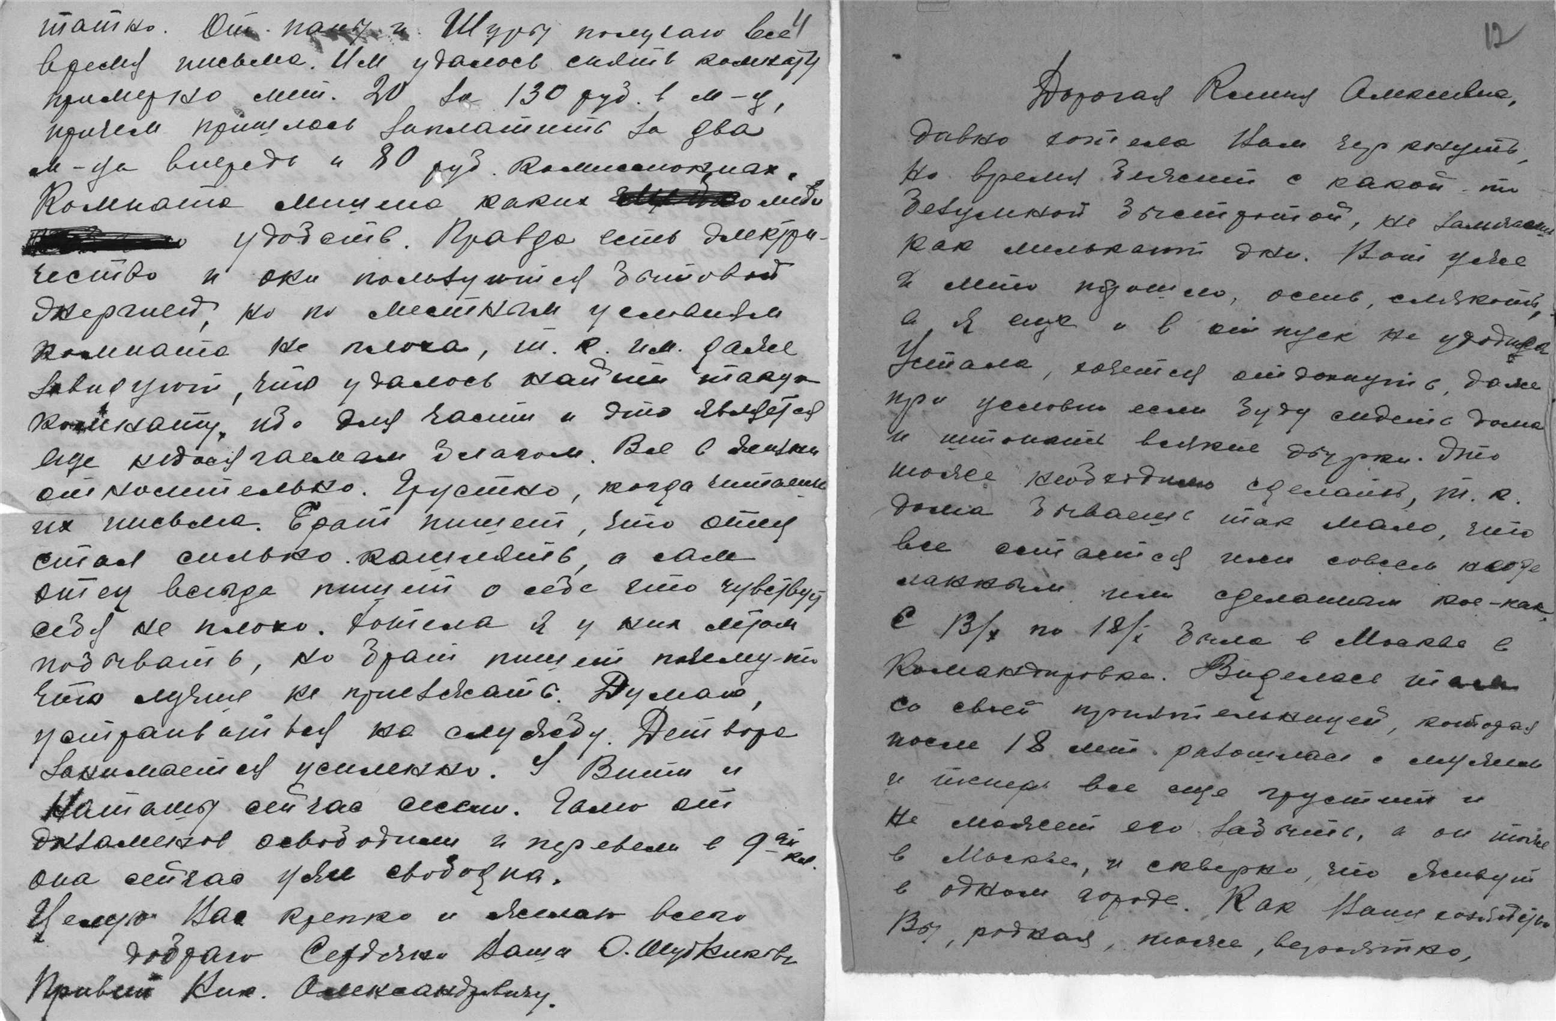 татко. От папы и Шуры получаю все
11
время письма. Им удалось снять комнату
примерко мет. 20 за 130 руб. в м-ц,
причем пришлось заплатить за два
м-ца вперед и 80 руб. комиссионных.
Комната лишена каких либо
удобств. Правда есть электри-
чество и они пользуются бытовой
энергией, но по местным условиям
комната не плоха, т.к. им даже
завидуют, что удалось найти такую
комнату, ибо для части и это является
еще недосягаемым благом. Все в жизни
относительно. Грустно, когда читаешь
их письма. Брат пишет, что отец
стал сильно кашлять, а сам
отец всегда пишет о себе что чувствует
себя не плохо. Хотела я у них летом
побывать, но брат пишет почему-то
что лучше не приезжать. Думаю,
устраиваться на службу. Детвора
занимается усиленно. У Вити и
Наташи сейчас сессия. Галю от
экзаменов освободили и перевели в 9ый кл.
она сейчас уже свободна.
Целую Вас крепко и желаю всего
доброго Сердечно Ваша О.
Привет Ник. Александровичу.
12
Дорогая Ксения Алексеевна,
давно хотела Вам черкнуть,
но время бежит с какой-то
безумной быстротой, не замечаешь
как мелькают дни. Вот уже
и лето прошло, осень, слякоть,
а я еще и в отпуск не уходила
Устала, хочется отдохнуть, даже
при условии если буду сидеть дома
и штопать всякие дырки. Это
тоже необходимо сделать, т.к.
дома бываешь так мало, что
все остается или совсем несде
ланным или сделанным кое-как.
С 13/X по 18/X была в Москве в
командировке. Виделась там
со своей приятельницей, которая
после 18 лет разошлась с мужем
и теперь все еще грустит и
не может его забыть, а он тоже
в Москве, и скверно, что живут
в одном городе. Как Ваше хозяйство
Вы, родная, тоже, вероятно,